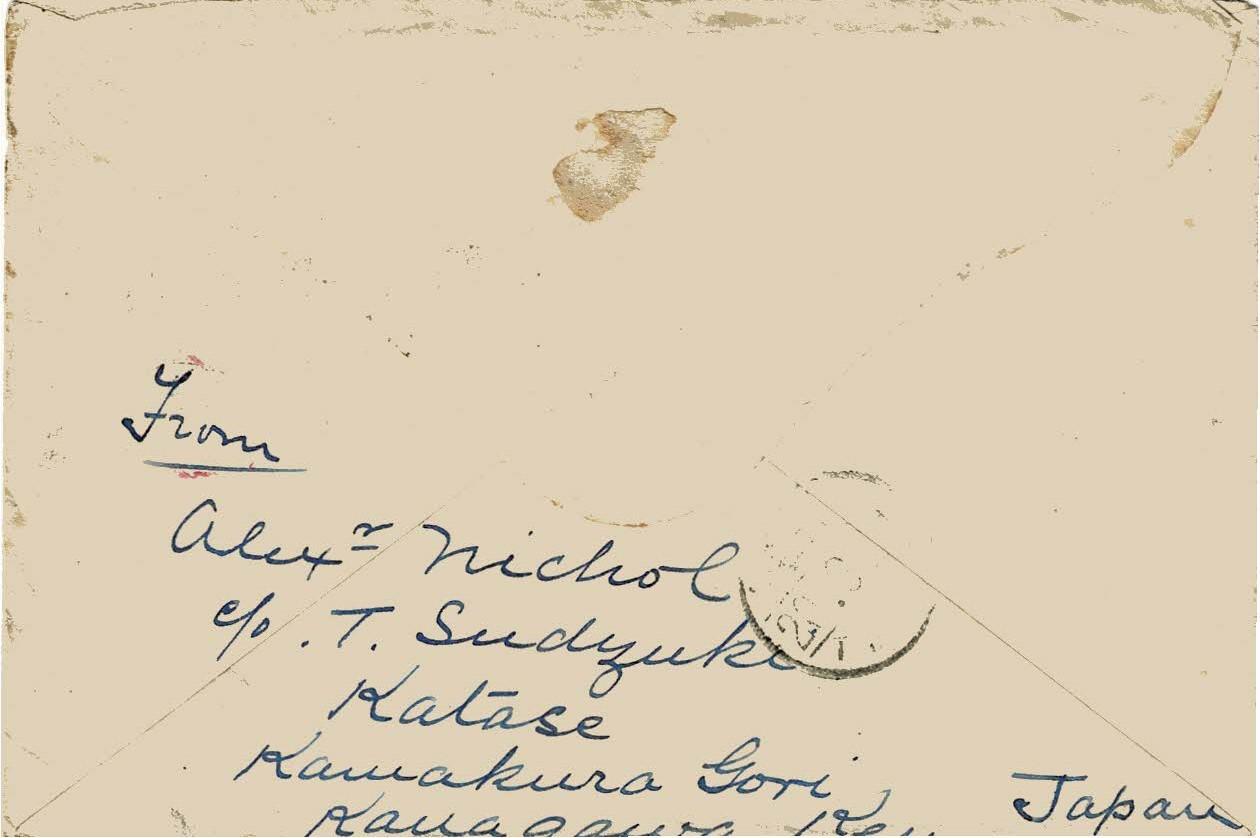 From
Alexr Nichol
c/o . T. Sudzuki
Katase
Kamakura Gori
Kanagawa Ken
Japan